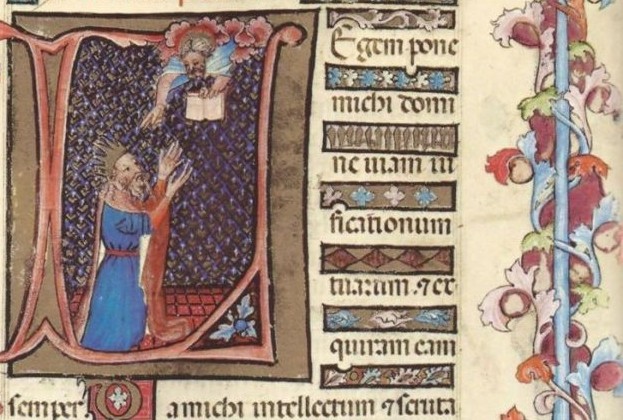 LEgem pone
michi domi
ne uiam iu
ficationum
tuarum .⁊ ex
quiram eam
semper Da michi intellectum ⁊ scruta